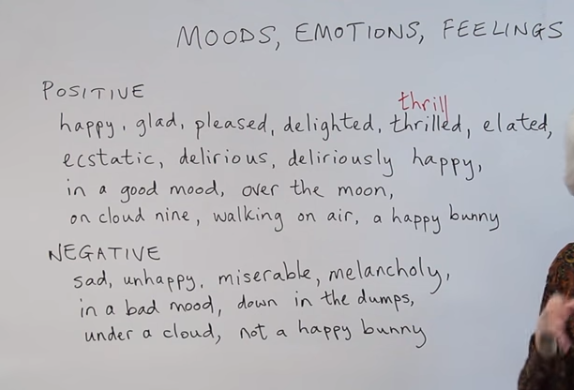 MOODS, EMOTIONS, FEELINGS
POSITIVE
thrill
happy, glad, pleased, delighted, thrilled, elated,
ecstatic, delirious, deliriously happy,
in a good mood, over the moon,
on cloud nine, walking on air, a happy bunny
NEGATIVE
sad, unhappy, miserable, melancholy,
in a bad mood, down in the dumps,
under a cloud, not a happy bunny